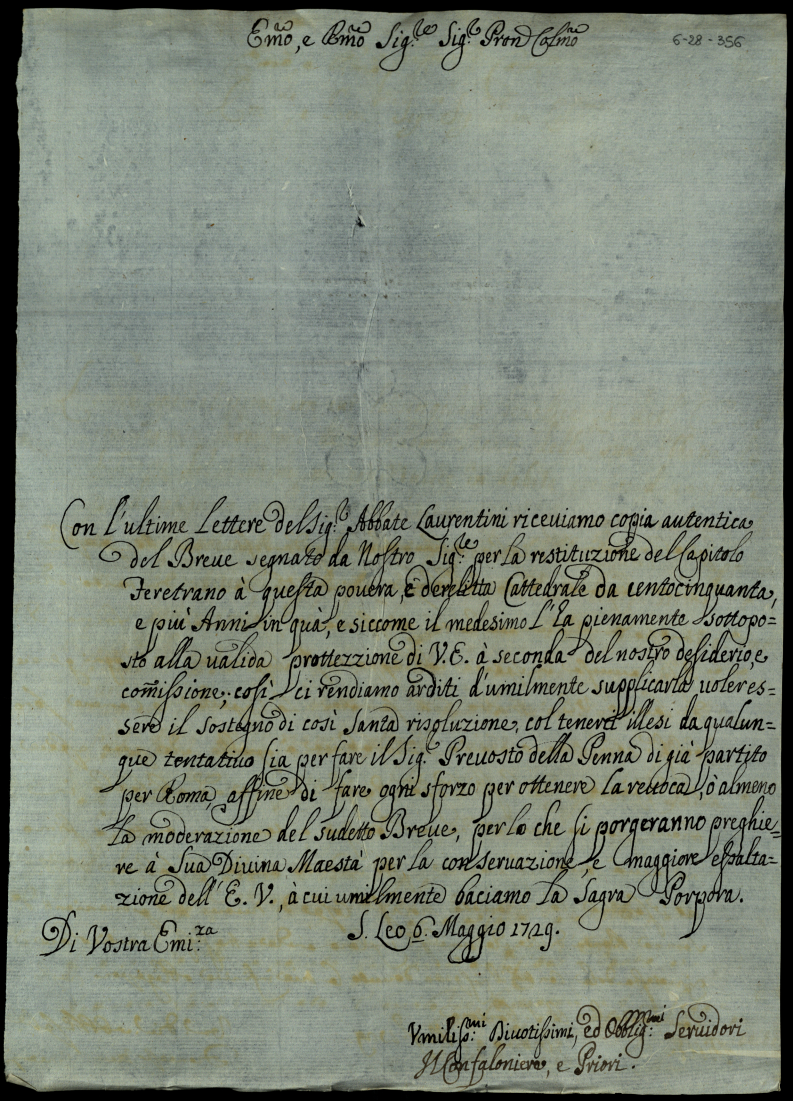 Emõ, e Rmõ Sig.re Sig.re Pron Colmõ
6-28-356
Con l'ultime Lettere del Sig.re Abbate Laurentini riceviamo copia autentica
del Breue segnato da Nostro Sig.re per la restituzione del Capitolo
Feretrano à questa pouera, e derelitta Cattedrale da centocinquanta,
e più Anni in quà, e siccome il medesimo l'ha pienamente sottopo=
sto alla ualida prottezzione di V.E. à seconda del nostro desiderio, e
com̃issione; così ci rendiamo arditi d'umilmente supplicarla uoler es=
sere il Sostegno di così Santa risoluzione, col tenerci illesi da qualun=
que tentatiuo sia per fare il Sig.re Preuosto della Penna di già partito
per Roma, affine di fare ogni sforzo per ottenere la reuoca, ò almeno
la moderazione del sudetto Breue, per lo che si porgeranno preghie=
re à Sua Diuina Maestà per la conseruazione, e maggiore essalta=
zione dell'E.V., à cui umilmente baciamo la Sagra Porpora.
Di Vostra Emi:za S. Leo 6. Maggio 1729.
Vmiliss:mi Diuotissimi, ed Obblig:mi Seruidori
Il Confaloniere, e Priori.